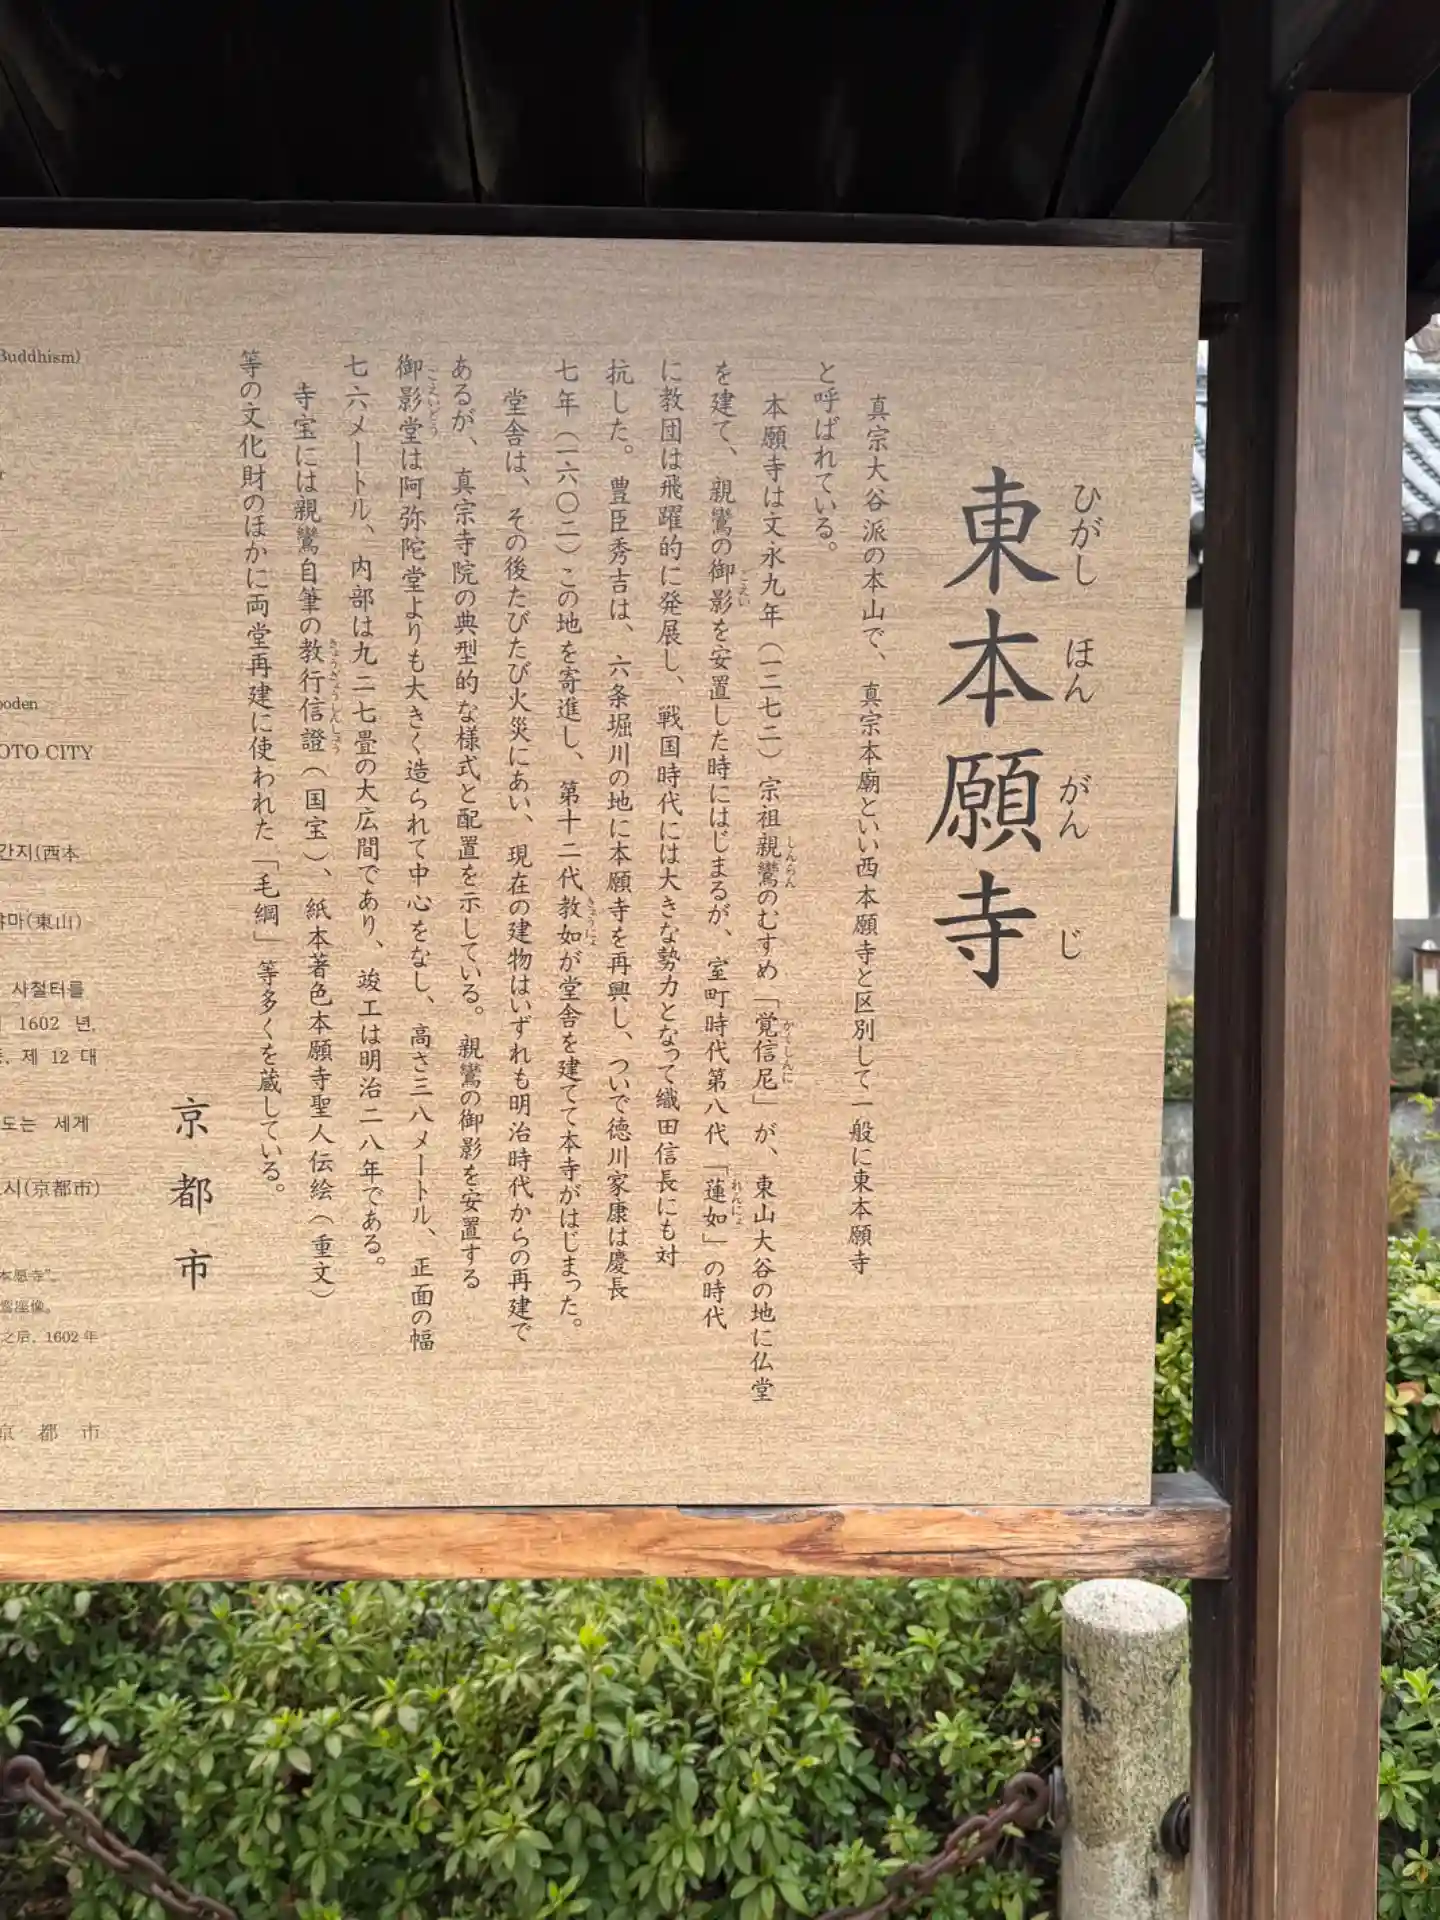 東本願寺
ひがし ほん がん じ
真宗大谷派の本山で、真宗本廟といい西本願寺と区別して一般に東本願寺
と呼ばれている。
本願寺は文永九年（一二七二）宗祖親鸞のむすめ「覚信尼」が、東山大谷の地に仏堂
しんらん
かくしんに
を建て、親鸞の御影を安置した時にはじまるが、室町時代第八代「蓮如」の時代
ごえい
れんにょ
に教団は飛躍的に発展し、戦国時代には大きな勢力となって織田信長にも対
抗した。豊臣秀吉は、六条堀川の地に本願寺を再興し、ついで徳川家康は慶長
七年（一六〇二）この地を寄進し、第十二代教如が堂舎を建てて本寺がはじまった。
きょうにょ
堂舎は、その後たびたび火災にあい、現在の建物はいずれも明治時代からの再建で
あるが、真宗寺院の典型的な様式と配置を示している。親鸞の御影を安置する
御影堂は阿弥陀堂よりも大きく造られて中心をなし、高さ三八メートル、正面の幅
ごえいどう
七六メートル、内部は九二七畳の大広間であり、竣工は明治二八年である。
寺宝には親鸞自筆の教行信證（国宝）、紙本著色本願寺聖人伝絵（重文）
きょうぎょうしんしょう
等の文化財のほかに両堂再建に使われた「毛綱」等多くを蔵している。
京都市
Buddhism)
ooden
OTO CITY
간지(西本
야마(東山)
사찰터를
1602 년,
제 12 대
도는 세계
시(京都市)
本愿寺”。
鸾座像。
之后, 1602 年
京 都 市